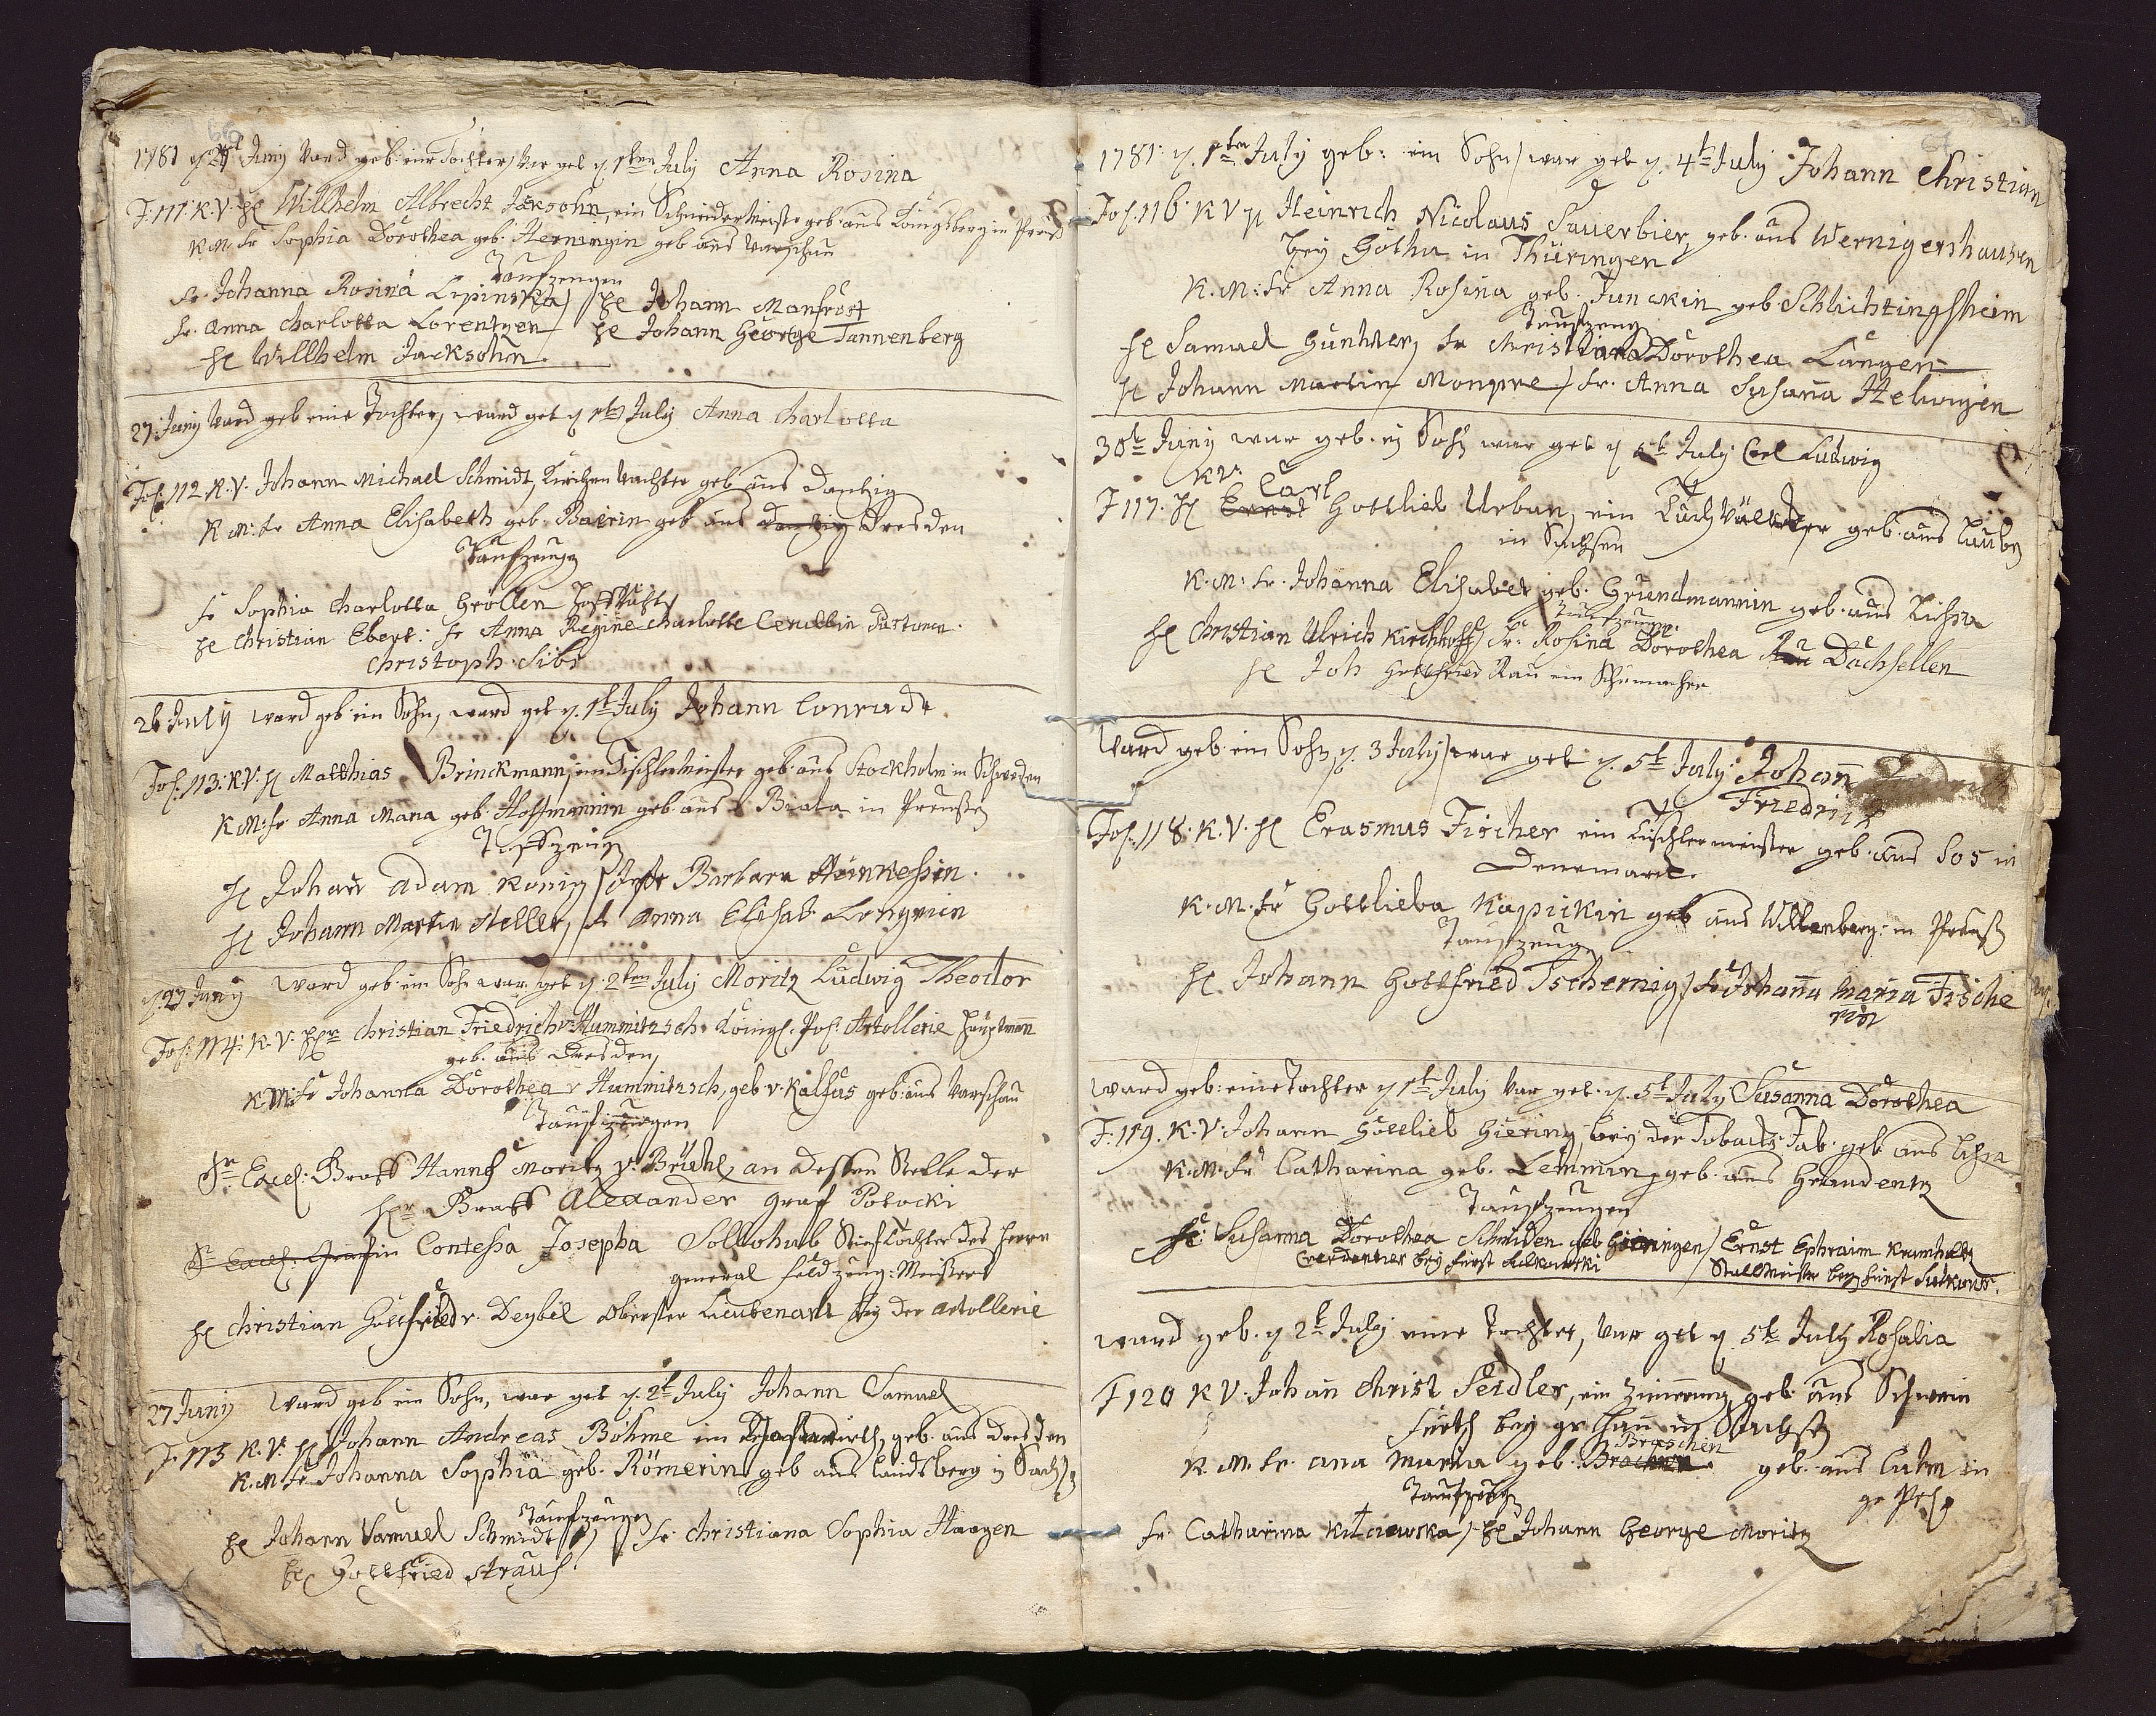 66
1781 d. Juny Ward geb. eine Tochter, War get d. 1ten July Anna Rosina
F. 111. K. V. He Willhelm Albrecht Jaksohn, ein Schneider Meister geb. aus Königsberg in Preuß
K. M. Fr Sophia Dorothea geb. Herningin geb aus Warschau
Taufzeugen
Fr. Johanna Rosina Lipinska / He Johann Manfrost
Fr. Anna Charlotta Lorentzen He Johann George Tannenberg
He Willhelm Jacksohn
27. Juny Ward geb eine Tochter, ward get d 1ten July Anna Charlotta
Fol. 112. K. V. Johann Michael Schmidt, Kirchen Wachter geb aus Dantzig
K. M. Fr Anna Elisabeth geb. Bairin geb aus Dantzig Dresden
Taufzeugen
Fr Sophia Charlotta Gröllen
He Christian Ebert: Fr Anna Regine Charlotte
Christoph Sibs
26 July ward geb. ein Sohn, ward get d. 1t July Johann Conradt
Fol. 113. K. V. H Matthias Brinckmann, ein Tischlermeister geb. aus Stockholm in Schweden
K. M. Fr Anna Maria geb. Hoffmannin geb. aus Biala in Preußen
Taufzeugen
He Johann Adam König / Barbara
He Johann Martin Heller, Fr Anna Elisab.
d. 27 Juny Ward geb. ein Sohn war get d. 2ten July Moritz Ludwig Theodor
Fol. 114. K. V. Herr Christian Friedrich v. Hummitzsch Königl. Pol. Artollerie Hauptmann
geb. aus Dresden
K. M. Fr Johanna Dorothea v Hummitzsch, geb v. Kalfus geb. aus Warschau
Taufzeugen
Sr. Excel. Graff Hanns Moritz v. Brühl, an Dessen Stelle der
Hr. Graff Alexander Graff Potocki
Sr Excel. Gräfin Contessa Josepha Sollohub Stief Tochter des Herrn
General Feldzeug-Meisters
He Christian Gottfried v. Deybel Oberster Lieutenant bey der Artollerie
27 Juny Ward geb ein Sohn, war get d. 2t July Johann Samuel
F. 115 K. V. He Johann Andreas Böhme ein geb. aus Dresden
K. M. Fr Johanna Sophia geb. Römerin geb aus Landsberg in Sachsen
Taufzeugen
He Johann Samuel Schmidt / Fr. Christiana Sophia Haagen
He Gottfried Strauß
1781. d. 1ten July geb: ein Sohn / war get d. 4t July Johann Christian
Fol. 116. K V H Heinrich Nicolaus Sauerbier, geb. aus Wernigershausen
bey Gotha in Thüringen
K. M: Fr Anna Rosina geb. Junckin geb. Schlichtingsheim
Taufzeugen
He Samuel Günther, Fr Christiana Dorothea Langen
H Johann Martin / Fr. Anna Susana Helwigin
30t Juny war geb. ein Sohn war get d July Carl Ludwig
K V. Carl
F 117. H Ernst Gottlieb Urban, ein geb. aus Lauban
in Sachsen
K. M: Fr. Johanna Elisabet geb. Gründmannin geb. aus Lissa
Taufzeugen
He Christian Ulrich Kirchhoff / Fr. Rosina Dorothea Dachsellen
He Joh Gottfried Rau ein Schumacher
Ward geb ein Sohn d. 3 July / war get d. 5t July Johann
Friedrich
Fol. 118. K. V. H Erasmus Fischer ein Tischlermeister geb. aus Sos in
Denemarck
K. M. Fr Gottlieba Kapickin geb aus Willenberg in Preuß
Taufzeugen
He Johann Gottfried Tschernig / Fr Johana Maria Fische
rin
Ward geb: eine Tochter d 1t July War get. d. 5t July Susanna Dorothea
F. 119. K. V. Johann Gottlieb Giering bey der Toback Fab. geb aus Lissa
K. M. Fr Catharina geb. Lemmin geb. aus Graudentz
Taufzeugen
Fr. Susanna Dorothea Schmiden geb Göringen / Ernst Ephraim Krumholtz
bey Fürst Sulkowski Stallmeister bey Fürst Sulkowsk.
ward geb. d 2t July eine Tochter, War get d 5t July Rosalia
F 120 K V. Johan Christ Seidler, ein geb. aus Schwein
furth bey in Sachsen
K. M. Fr. Ana Maria geb. Braschin geb. aus Culm in
Taufzeugen
Fr. Catharina / He Johann George Moritz